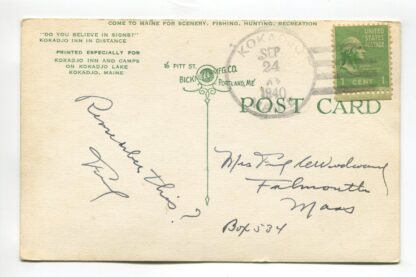 COME TO MAINE FOR SCENERY, FISHING, HUNTING, RECREATION
"DO YOU BELIEVE IN SIGNS?"
KOKADJO INN IN DISTANCE
PRINTED ESPECIALLY FOR
KOKADJO INN AND CAMPS
ON KOKADJO LAKE
KOKADJO, MAINE
16 PITT ST.
BICK MFG.CO.
PORTLAND, ME.
KOKADJO
SEP
24
1940
UNITED
STATES
POSTAGE
1 CENT 1
POST CARD
Remember this?
Paul
Mrs Paul Woodward
Falmouth
Mass
Box 534